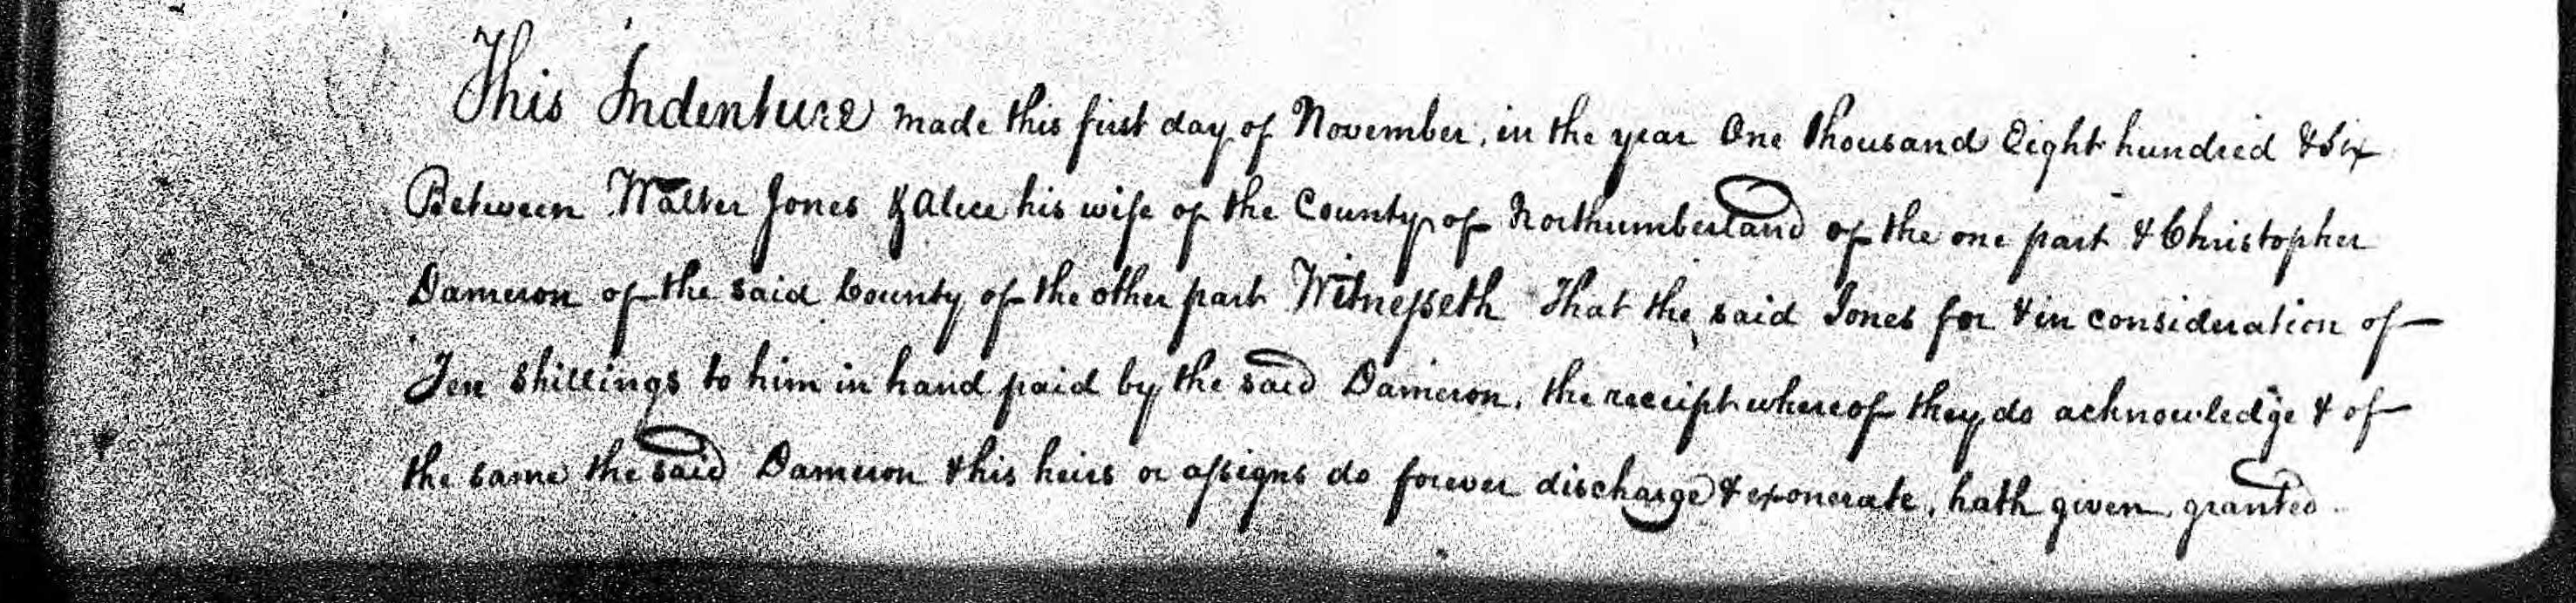 This Indenture made this first day of November, in the year One thousand Eight hundred & Six
Between Walter Jones & Alice his wife of the County of Northumberland of the one part & Christopher
Dameron of the said County of the other part Witnesseth That the said Jones for & in consideration of
Ten Shillings to him in hand paid by the said Dameron, the receipt whereof they do acknowledge & of
the same the said Dameron & his heirs or assigns do forever discharge & exonerate, hath given, granted